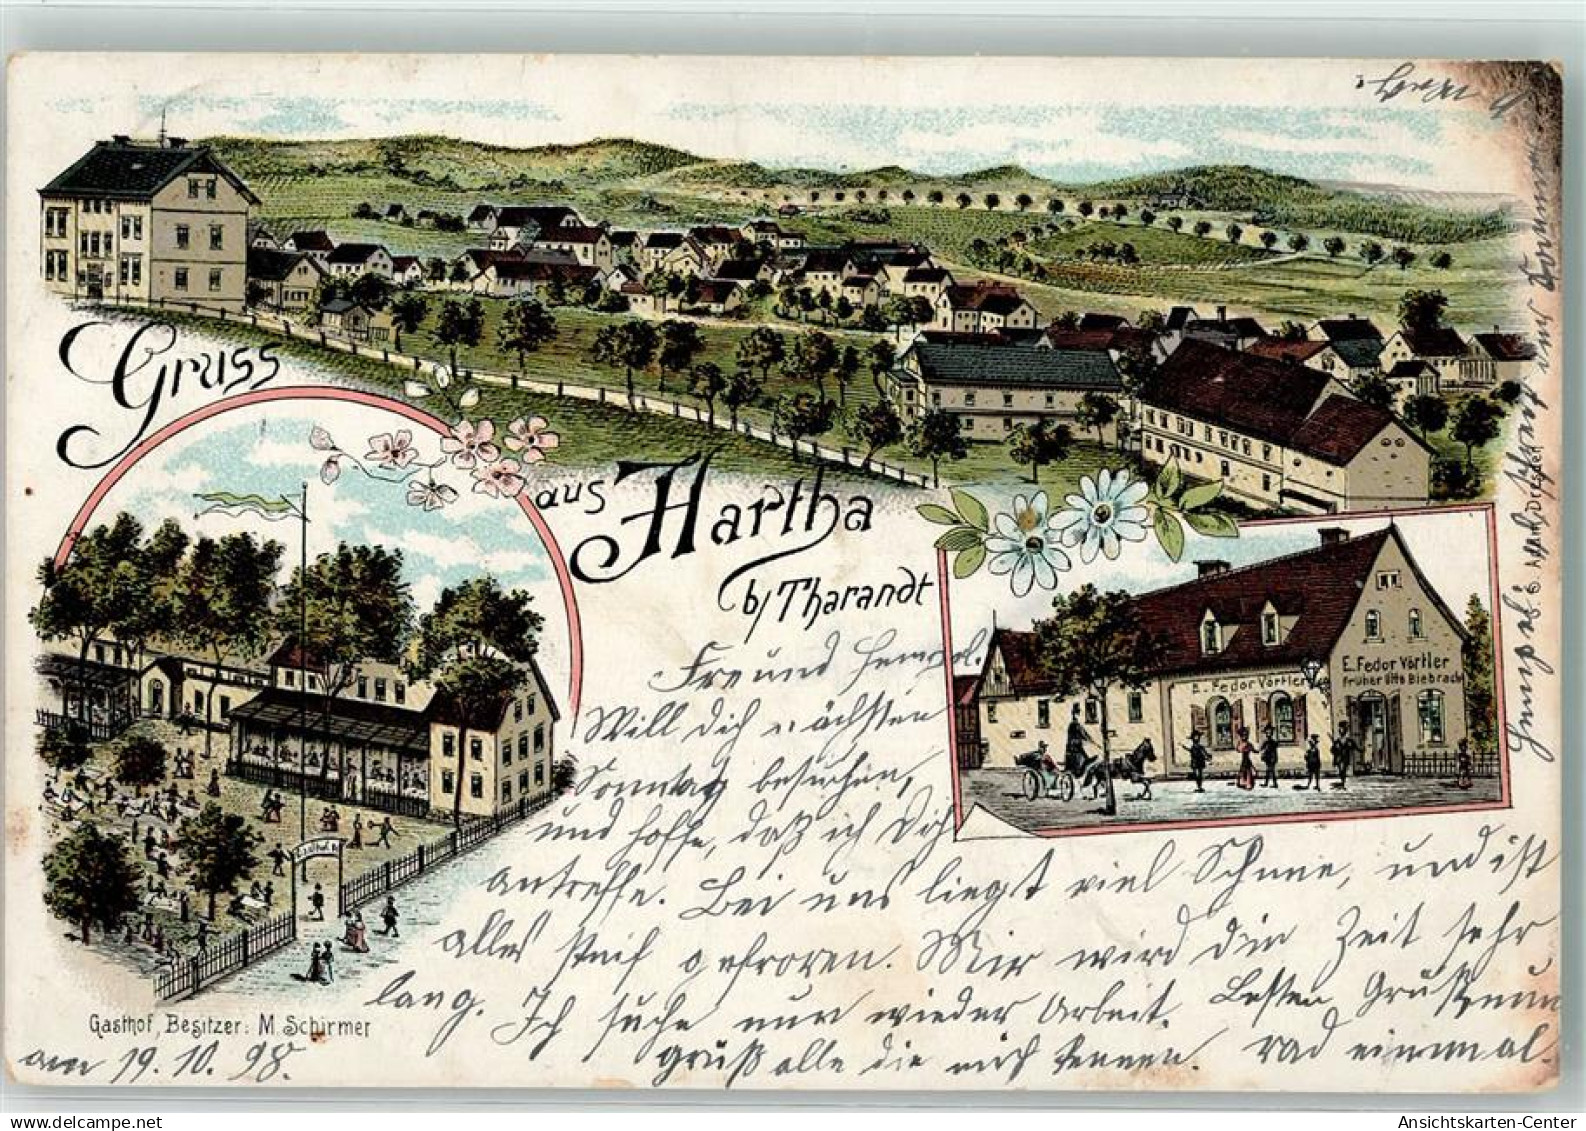 Gruss
aus
Hartha
b/ Tharandt
E. Fedor Vörtler
früher Otto Biebrach
E. Fedor Vörtler
Gasthof, Besitzer: M. Schirmer
am 19.10.98.
Freund Hempel.
Will dich nächsten
Sonntag besuchen,
und hoffe, daß ich Dich
antreffe. Bei uns liegt viel Schnee, und ist
alles steif gefroren. Mir wird die Zeit sehr
lang. Ich suche nur wieder Arbeit.
grüß alle die mich kennen.
Besten Gruß nun
rad einmal.
Ansichtskarten-Center